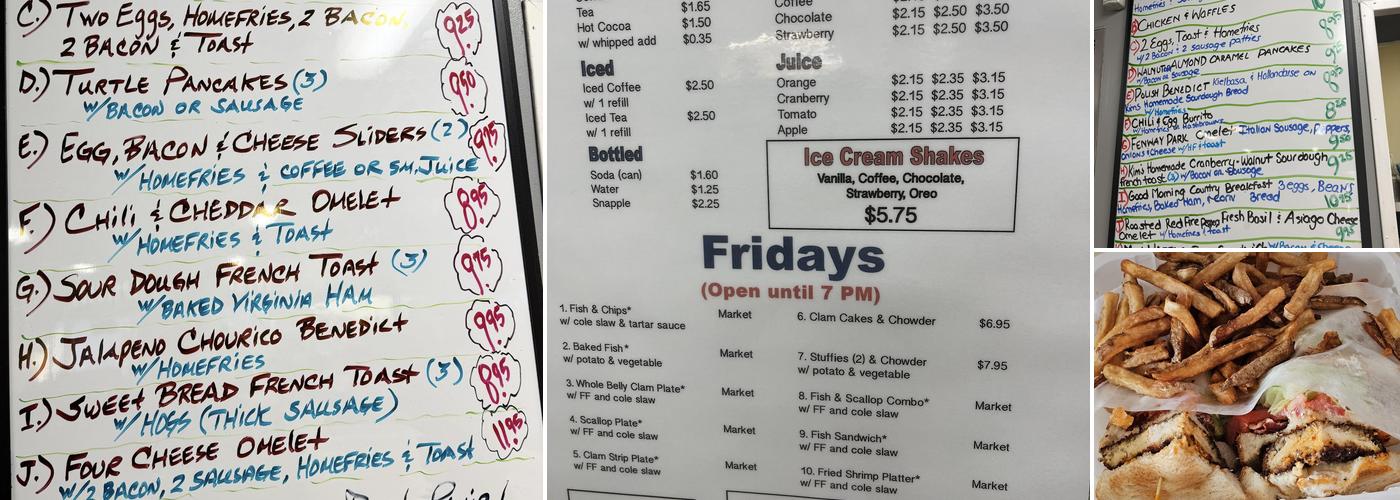 C.) Two Eggs, Homefries, 2 Bacon,
2 Bacon & Toast
9.25
D.) Turtle Pancakes (3)
w/Bacon or Sausage
9.50
E.) Egg, Bacon & Cheese Sliders (2)
w/Homefries & Coffee or Sm. Juice
9.75
F.) Chili & Cheddar Omelet
w/Homefries & Toast
8.95
G.) Sour Dough French Toast (3)
w/Baked Virginia Ham
9.75
H.) Jalapeno Chourico Benedict
w/Homefries
9.95
I.) Sweet Bread French Toast (3)
w/Hogs (Thick Sausage)
8.95
J.) Four Cheese Omelet
w/2 Bacon, 2 Sausage, Homefries & Toast
11.95
Tea $1.65
Hot Cocoa $1.50
w/ whipped add $0.35
Iced
Iced Coffee $2.50
w/ 1 refill
Iced Tea $2.50
w/ 1 refill
Bottled
Soda (can) $1.60
Water $1.25
Snapple $2.25
Coffee $2.15 $2.50 $3.50
Chocolate $2.15 $2.50 $3.50
Strawberry $2.15 $2.50 $3.50
Juice
Orange $2.15 $2.35 $3.15
Cranberry $2.15 $2.35 $3.15
Tomato $2.15 $2.35 $3.15
Apple $2.15 $2.35 $3.15
Ice Cream Shakes
Vanilla, Coffee, Chocolate,
Strawberry, Oreo
$5.75
Fridays
(Open until 7 PM)
1. Fish & Chips* Market
w/ cole slaw & tartar sauce
2. Baked Fish* Market
w/ potato & vegetable
3. Whole Belly Clam Plate* Market
w/ FF and cole slaw
4. Scallop Plate* Market
w/ FF and cole slaw
5. Clam Strip Plate* Market
w/ FF and cole slaw
6. Clam Cakes & Chowder $6.95
7. Stuffies (2) & Chowder $7.95
w/ potato & vegetable
8. Fish & Scallop Combo* Market
w/ FF and cole slaw
9. Fish Sandwich* Market
w/ FF and cole slaw
10. Fried Shrimp Platter* Market
w/ FF and cole slaw
B) Chicken & Waffles
C) 2 Eggs, Toast & Homefries
w/2 Bacon & 2 sausage patties
D) Almond Caramel Pancakes
w/Bacon or Sausage
E) Polish Benedict Kielbasa & Hollandaise on
Kims Homemade Sourdough Bread
w/Homefries
F) Chili & Egg Burrito
G) Fenway Park Omelet Italian Sausage, Peppers,
onions & Cheese w/HF & toast
H) Kims Homemade Cranberry-Walnut Sourdough
french toast (3) w/Bacon or Sausage
9.25
I) Good Morning Country Breakfast 3 eggs, Beans
Homefries, Baked Ham, Bread
10.95
J) Roasted Red Fire Pepper, Fresh Basil & Asiago Cheese
Omelet w/Homefries & toast
9.95